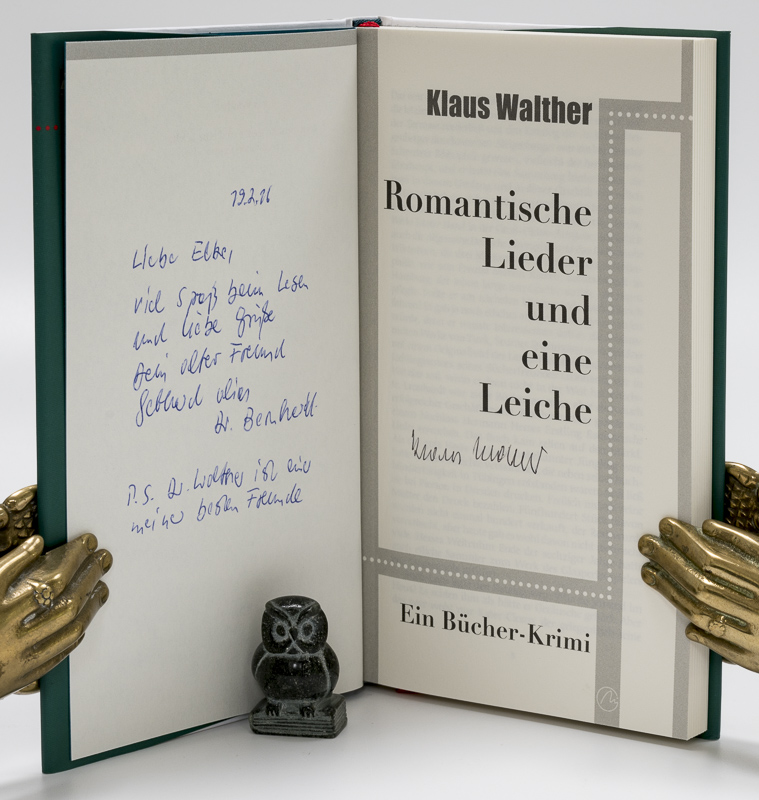 19.2.16
Liebe Elke,
viel Spaß beim Lesen
und liebe Grüße
Dein alter Freund
Gebhard alias
Dr. Bernhardt.
P.S. Dr. Walther ist einer
meiner besten Freunde
Klaus Walther
Romantische
Lieder
und
eine
Leiche
Klaus Walther
Ein Bücher-Krimi